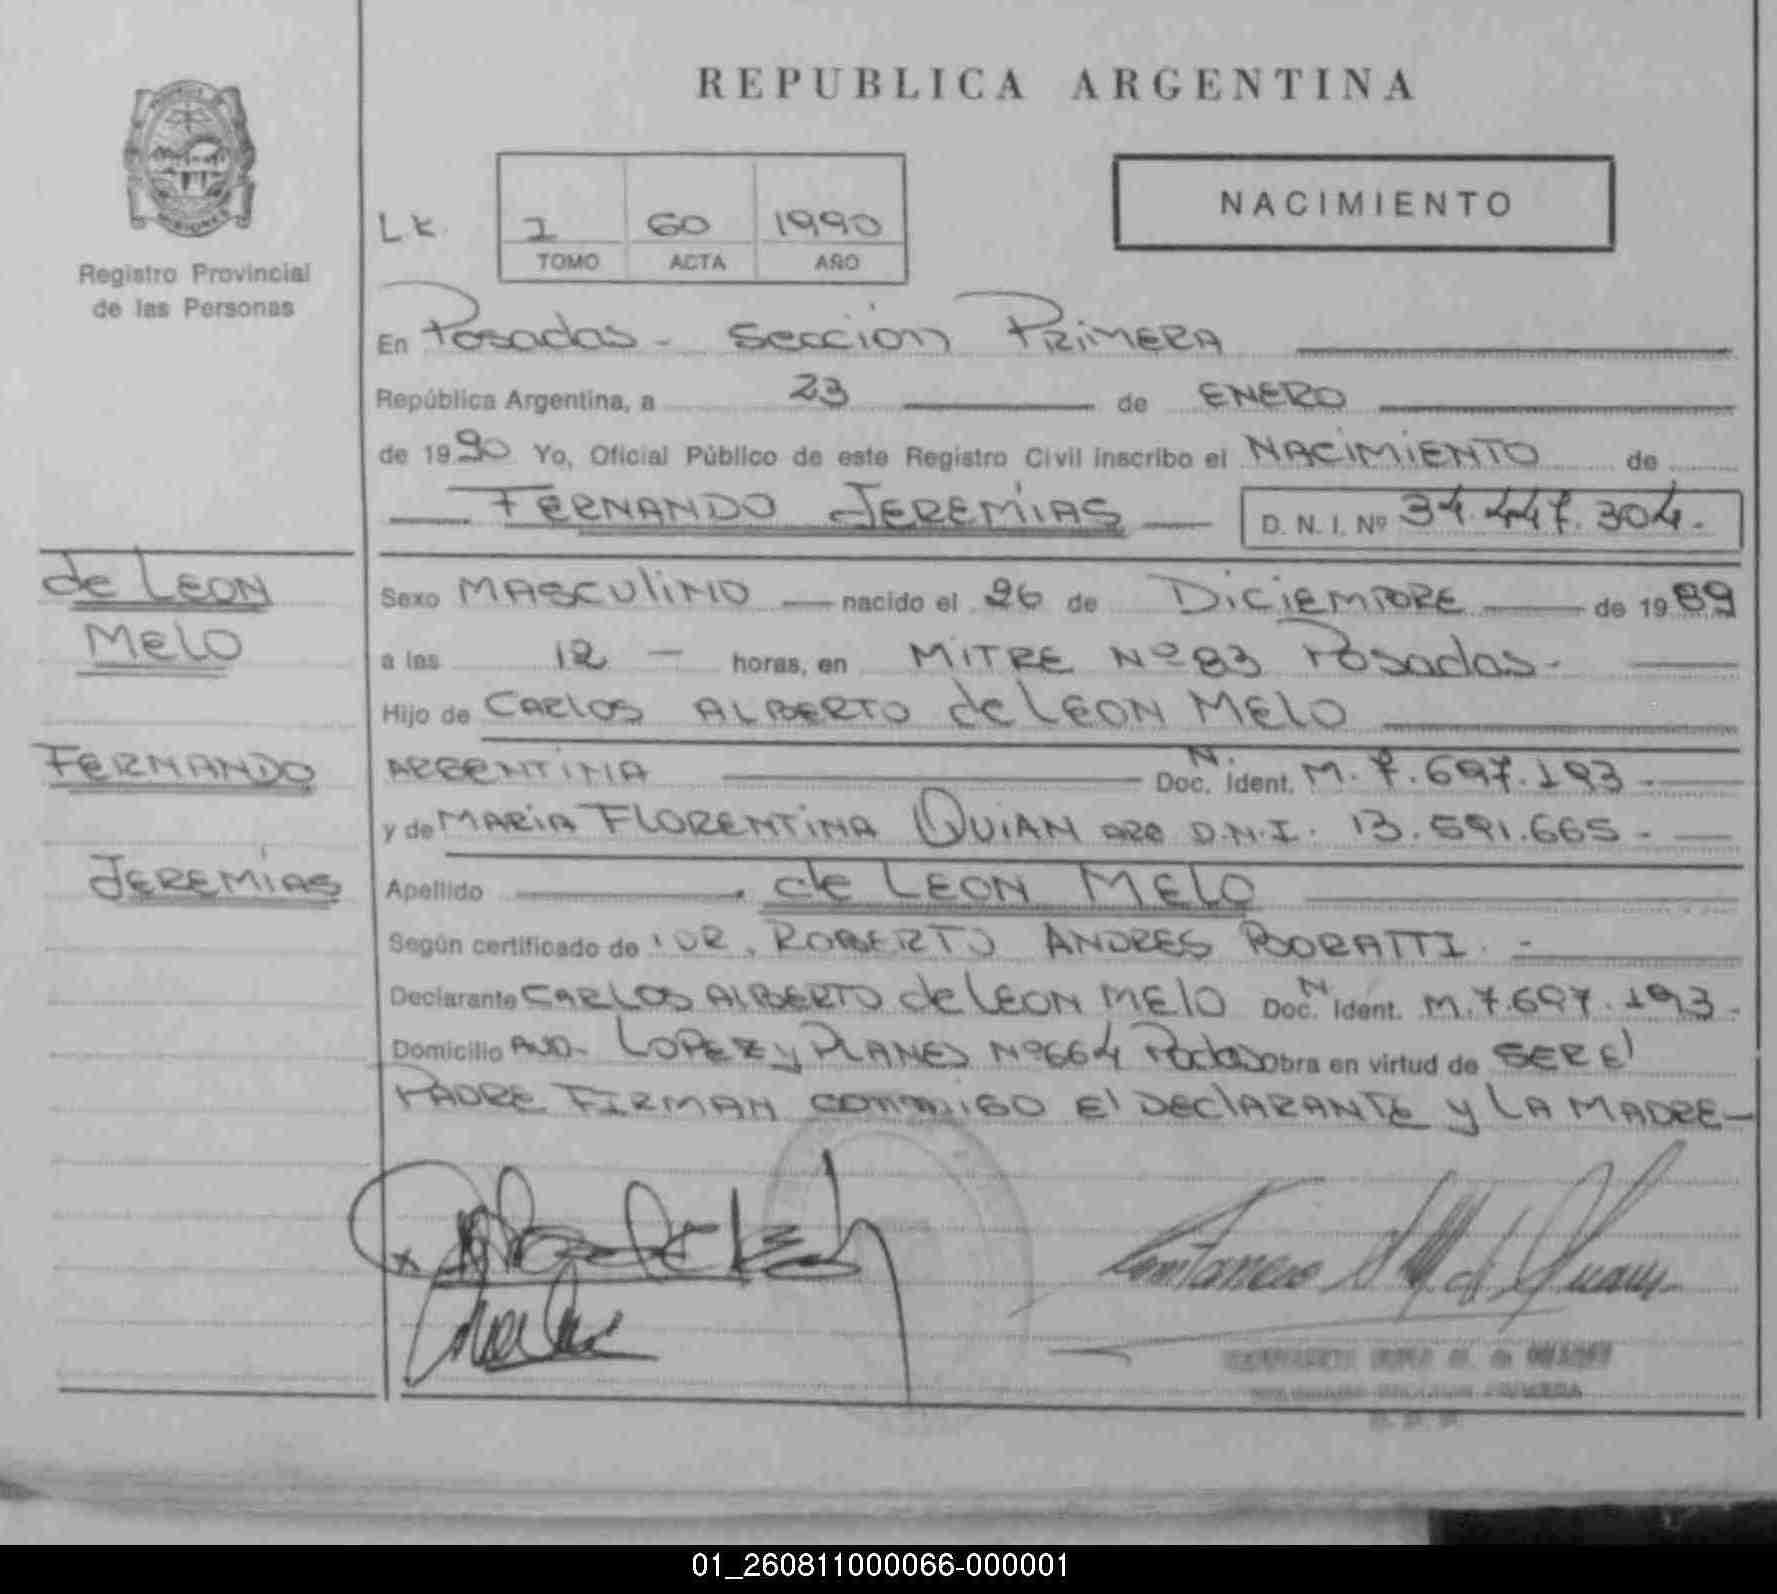 REPUBLICA ARGENTINA
NACIMIENTO
Registro Provincial
de las Personas
1 60 1990
TOMO ACTA AÑO
En Posadas - Seccion PRIMERA
República Argentina, a 23 de ENERO
de 1990 Yo, Oficial Público de este Registro Civil inscribo el NACIMIENTO de
FERNANDO JEREMÍAS D. N. I. Nº 34.447.304.
de LEON
MELO
FERNANDO
JEREMÍAS
Sexo MASCULINO nacido el 26 de DICIEMBRE de 1989
a las 12 - horas, en MITRE Nº 83 Posadas -
Hijo de CARLOS ALBERTO de LEON MELO
ARGENTINA Doc. N. Ident. M. 7.697.193 -
y de MARIA FLORENTINA QUIAN ARG D.N.I. 13.591.665 -
Apellido de LEON MELO
Según certificado de DR. ROBERTO ANDRES BORATTI. -
Declarante CARLOS ALBERTO de LEON MELO Doc. N Ident. M. 7.697.193 -
Domicilio AVD. LOPEZ y PLANES Nº 664 Podas obra en virtud de SER El
PADRE FIRMAN CONMIGO El DECLARANTE y LA MADRE -
01_260811000066-000001